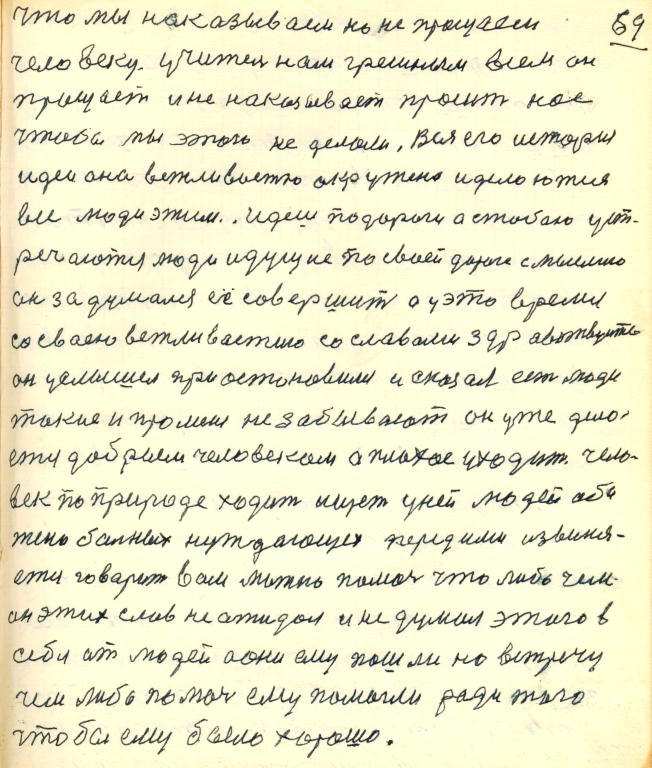 что мы наказываем но не прощаем 69
человеку. учителя нам грешным всем он
прощает и не наказывает просит нас
чтобы мы этого не делали, Вся его история
идеи она вежливостю окружена и делаются
все люди этим.. Идеш по дороги а стобою уст-
речаются люди идущие по своей дороге с мыслию
он задумался её совершит а у это время
со сваею вежливастию со славами здравствуйте
он услышел приостановили и сказал есть люди
такие и про меня не забывают он уже дела-
ети добрыем человеком а плохое уходит. чело-
век по природе ходит ищет у ней людей оби
жено больных нуждающех перед ими извиня-
ети говарит вам можно помоч что либо чем-
он этих слов не ожидол и не думал этого в
себя от людей а они ему пошли на встречу
чем либо помоч ему помогли ради того
чтобы ему было хорошо.